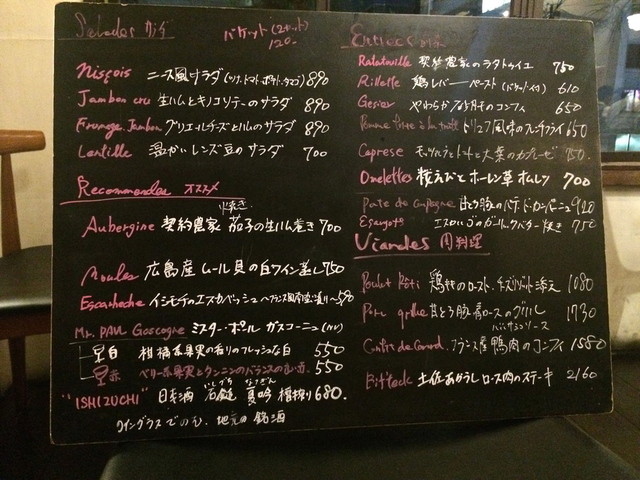 Salades サラダ
バケット(2カット) 120-
Niçois ニース風サラダ(ツナ、トマト、ポテト、タマゴ) 890
Jambon cru 生ハムとキノコソテーのサラダ 890
Fromage Jambon グリエールチーズとハムのサラダ 890
Lentille 温かいレンズ豆のサラダ 700
Recommandes オススメ
Aubergine 契約農家 焼き茄子の生ハム巻き 700
Moules 広島産 ムール貝の白ワイン蒸し 750
Escabeche イシモチのエスカベッシュ 590
Mr. PAUL Gascogne ミスター・ポール ガスコーニュ
白 柑橘系果実の香りのフレッシュな白 550
赤 ベリー系果実とタンニンのバランスの良い赤 550
"ISHIZUCHI" 日本酒 石鎚 いしづち 夏吟 なつぎん 槽搾り 680.
ワイングラスでのむ、地元の銘酒
Entrees
Ratatouille 契約農家のラタトゥイユ 750
Rillette 鶏レバーペースト(バケット付) 610
Gesier やわらか砂肝のコンフィ 650
トリュフ風味のフレンチフライ 650
Caprese モッツァレラとトマトと大葉のカプレーゼ 750.
Omelettes 桜えびとホーレン草オムレツ 700
Pate de Campagne 甘とろ豚のパテ・ド・カンパーニュ 920
Escargots エスカルゴのガーリックバター焼き 750
Viandes 肉料理
Poulet Rôti 鶏ももロースト、チーズリゾット添え 1080
Porc grille 甘とろ豚肩ロースのグリル 1730
バルサミコソース
Confit de Canard フランス産鴨肉のコンフィ 1580
Bifteck 土佐あかうしロース肉のステーキ 2160